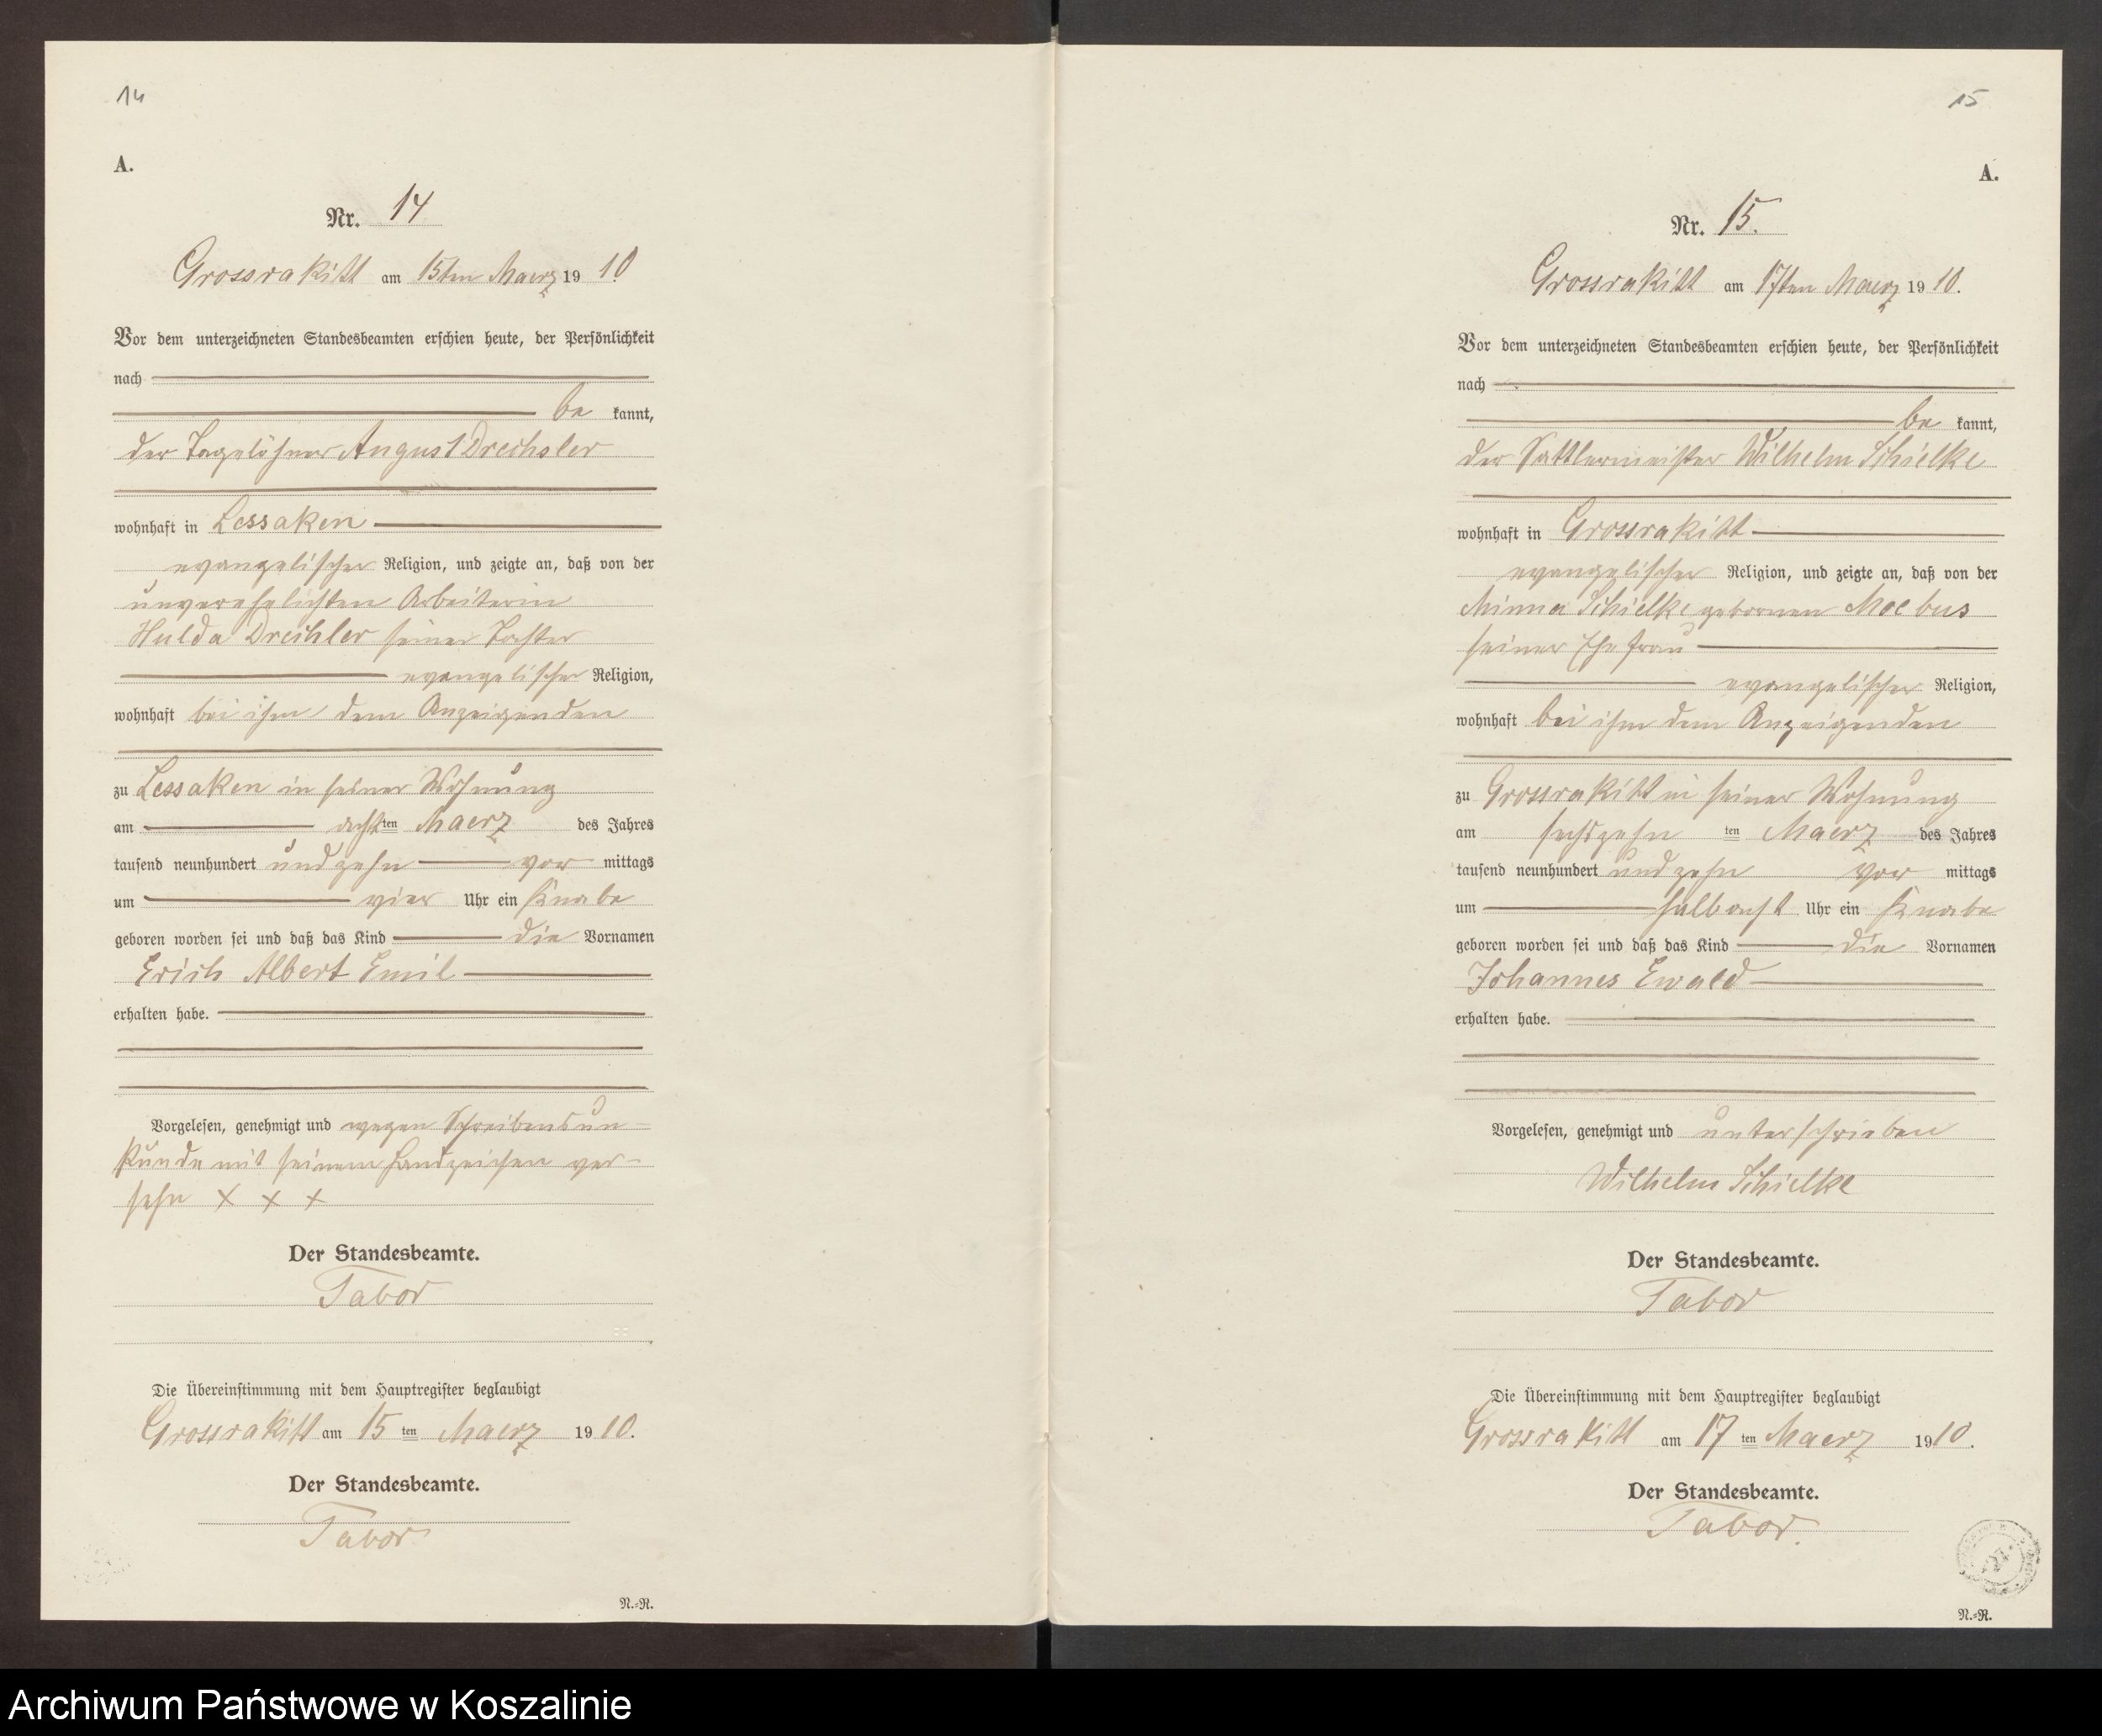 14
A.
Nr. 14
Grossrakitt am 15ten Maerz 19 10.
Vor dem unterzeichneten Standesbeamten erschien heute, der Persönlichkeit
nach
be kannt,
der Tagelöhner August Drechsler
wohnhaft in Lessaken
evangelischer Religion, und zeigte an, daß von der
unverehelichten Arbeiterin
Hulda Drechler seiner Tochter
evangelischer Religion,
wohnhaft bei ihm dem Anzeigenden
zu Lessaken in seiner Wohnung
am achtten Maerz des Jahres
tausend neunhundert und zehn vor mittags
um vier Uhr ein Knabe
geboren worden sei und daß das Kind die Vornamen
Erich Albert Emil
erhalten habe.
Vorgelesen, genehmigt und wegen Schreibensun-
kunde mit seinem Handzeichen ver-
sehn x x x
Der Standesbeamte.
Tabor
Die Übereinstimmung mit dem Hauptregister beglaubigt
Grossrakitt am 15 ten Maerz 19 10.
Der Standesbeamte.
Tabor
N.=R.
15
A.
Nr. 15.
Grossrakitt am 17ten Maerz 19 10.
Vor dem unterzeichneten Standesbeamten erschien heute, der Persönlichkeit
nach
be kannt,
der Sattlermeister Wilhelm Schielke
wohnhaft in Grossrakitt
evangelischer Religion, und zeigte an, daß von der
Minna Schielke gebornen Moebus
seiner Ehefrau
evangelischer Religion,
wohnhaft bei ihm dem Anzeigenden
zu Grossrakitt in seiner Wohnung
am sechszehn ten Maerz des Jahres
tausend neunhundert und zehn vor mittags
um halb acht Uhr ein Knabe
geboren worden sei und daß das Kind die Vornamen
Johannes Ewald
erhalten habe.
Vorgelesen, genehmigt und unterschrieben
Wilhelm Schielke
Der Standesbeamte.
Tabor
Die Übereinstimmung mit dem Hauptregister beglaubigt
Grossrakitt am 17 ten Maerz 19 10.
Der Standesbeamte.
Tabor.
N.=R.
Archiwum Państwowe w Koszalinie